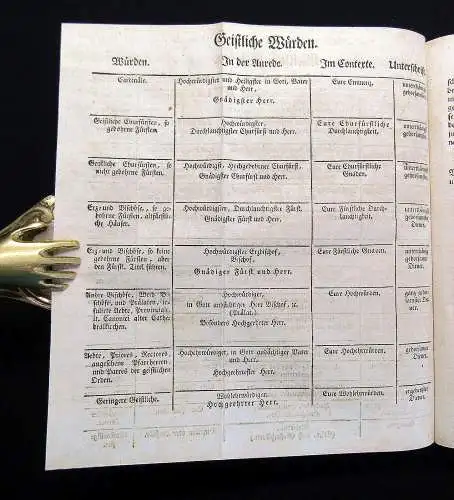 Geistliche Würden.
Würden. In der Anrede. Im Contexte. Unterschrift.
Cardinäle.
Hochwürdigster und Heiligster in Gott, Vater
und Herr,
Gnädigster Herr.
Eure Eminenz.
unterthänig
gehorsamster
Geistliche Churfürsten, so
gebohrne Fürsten.
Hochwürdigster,
Durchlauchtigster Churfürst und Herr.
Eure Churfürstliche
Durchlauchtigkeit.
unterthänig
gehorsamster
Geistliche Churfürsten, so
nicht gebohrne Fürsten.
Hochwürdigst, Hochgebohrner Churfürst,
Gnädigster Churfürst und Herr.
Eure Churfürstliche
Gnaden.
unterthänig
gehorsamster
Erz- und Bischöfe, so ge-
bohrne Fürsten, altfürstli-
che Häuser.
Hochwürdigster, Durchlauchtigster Fürst,
Gnädigster Fürst und Herr.
Eure Fürstliche Durch-
lauchtigkeit.
gehorsamster
Diener.
Erz- und Bischöfe, so keine
gebohrne Fürsten, aber
den Fürstl. Titel führen.
Hochwürdigster Erzbischof,
Bischof,
Gnädiger Fürst und Herr.
Eure Fürstliche Gnaden.
unterthänig
gehorsamster
Diener.
Andre Bischöfe, Weih Bi-
schöfe und Prälaten, in-
fulirte Aebte, Provinciale,
it. Canonici alter Cathe-
dralkirchen.
Hochwürdiger,
in Gott andächtiger Herr Bischof, ic.
(Prälat.)
Besonders Hochgeehrter Herr.
Eure Hochwürden.
ganz gehor-
samster Die-
ner.
Aebte, Priores, Rectores,
angesehene Pfarrherren
und Patres der geistlichen
Orden.
Hochehrwürdiger, in Gott andächtiger Vater
und Herr,
Hochgeehrtester Herr.
Eure Hochehrwürden.
gehorsamster
Diener.
Geringere Geistliche.
Wohlehrwürdiger,
Hochgeehrter Herr.
Eure Wohlehrwürden.
ergebenster
Diener.